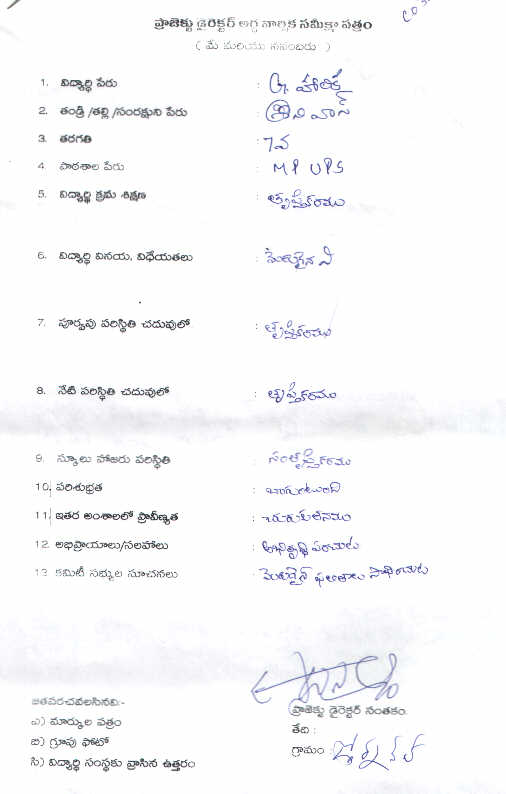 ప్రాజెక్టు డైరెక్టర్ అర్ధ వార్షిక సమీక్షా పత్రం
( మే మరియు నవంబరు )
1. విద్యార్థి పేరు : G. హారిక
2. తండ్రి /తల్లి /సంరక్షుని పేరు : శ్రీనివాస్
3. తరగతి : 7వ
4. పాఠశాల పేరు : MP UPS
5. విద్యార్థి క్రమ శిక్షణ : తృప్తికరము
6. విద్యార్థి వినయ, విధేయతలు : మెరుగైనవి
7. పూర్వపు పరిస్థితి చదువులో : తృప్తికరము
8. నేటి పరిస్థితి చదువులో : తృప్తికరము
9. స్కూలు హాజరు పరిస్థితి : సంతృప్తికరము
10. పరిశుభ్రత : బాగుంటుంది
11. ఇతర అంశాలలో ప్రావీణ్యత : చురుకుదనము
12. అభిప్రాయాలు/సలహాలు : అభివృద్ధి పరచుట
13. కమిటీ సభ్యుల సూచనలు : మెరుగైన ఫలితాలు సాధించుట
జతపరచవలసినవి:-
ఎ) మార్కుల పత్రం
బి) గ్రూపు ఫోటో
సి) విద్యార్థి సంస్థకు వ్రాసిన ఉత్తరం
ప్రాజెక్టు డైరెక్టర్ సంతకం
తేది :
గ్రామం :